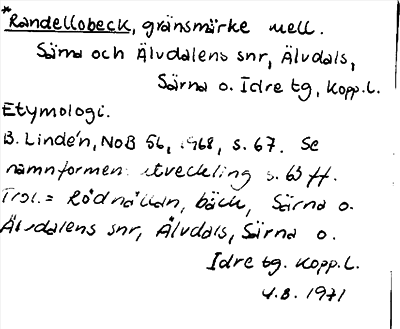 *Randellobeck, gränsmärke mell.
Särna och Älvdalens snr, Älvdals,
Särna o. Idre tg, Kopp.l.
Etymologi.
B. Lindén, NoB 56, 1968, s. 67. Se
namnformens utveckling s. 63 ff.
Trol. = Rödnällan, bäck, Särna o.
Älvdalens snr, Älvdals, Särna o.
Idre tg. Kopp.l.
4.8. 1971